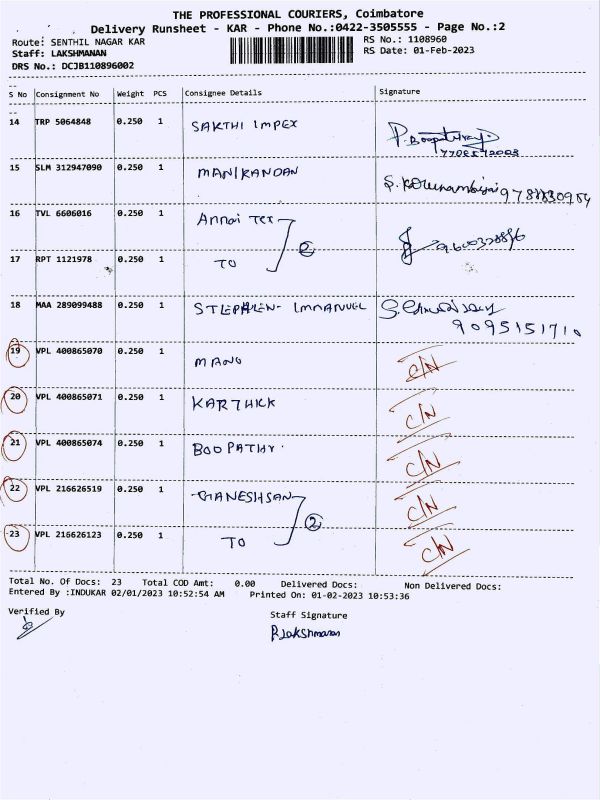 THE PROFESSIONAL COURIERS, Coimbatore
Delivery Runsheet - KAR - Phone No.:0422-3505555 - Page No.:2
Route: SENTHIL NAGAR KAR
RS No.: 1108960
Staff: LAKSHMANAN
RS Date: 01-Feb-2023
DRS No.: DCJB110896002
S No Consignment No Weight PCS Consignee Details Signature
14 TRP 5064848 0.250 1 SAKTHI IMPEX
15 SLM 312947090 0.250 1 MANIKANDAN
16 TVL 6606016 0.250 1 Annai Tex
17 RPT 1121978 0.250 1 TO 2
18 MAA 289099488 0.250 1 STEPHLEN- IMMANUEL
9095151710
19 VPL 400865070 0.250 1 MANO C/N
20 VPL 400865071 0.250 1 KARTHKK C/N
21 VPL 400865074 0.250 1 BOOPATHY. C/N
22 VPL 216626519 0.250 1 GANESHSAN C/N
23 VPL 216626123 0.250 1 TO 2 C/N
Total No. Of Docs: 23 Total COD Amt: 0.00 Delivered Docs: Non Delivered Docs:
Entered By :INDUKAR 02/01/2023 10:52:54 AM Printed On: 01-02-2023 10:53:36
Verified By
Staff Signature
P.Lakshmanan